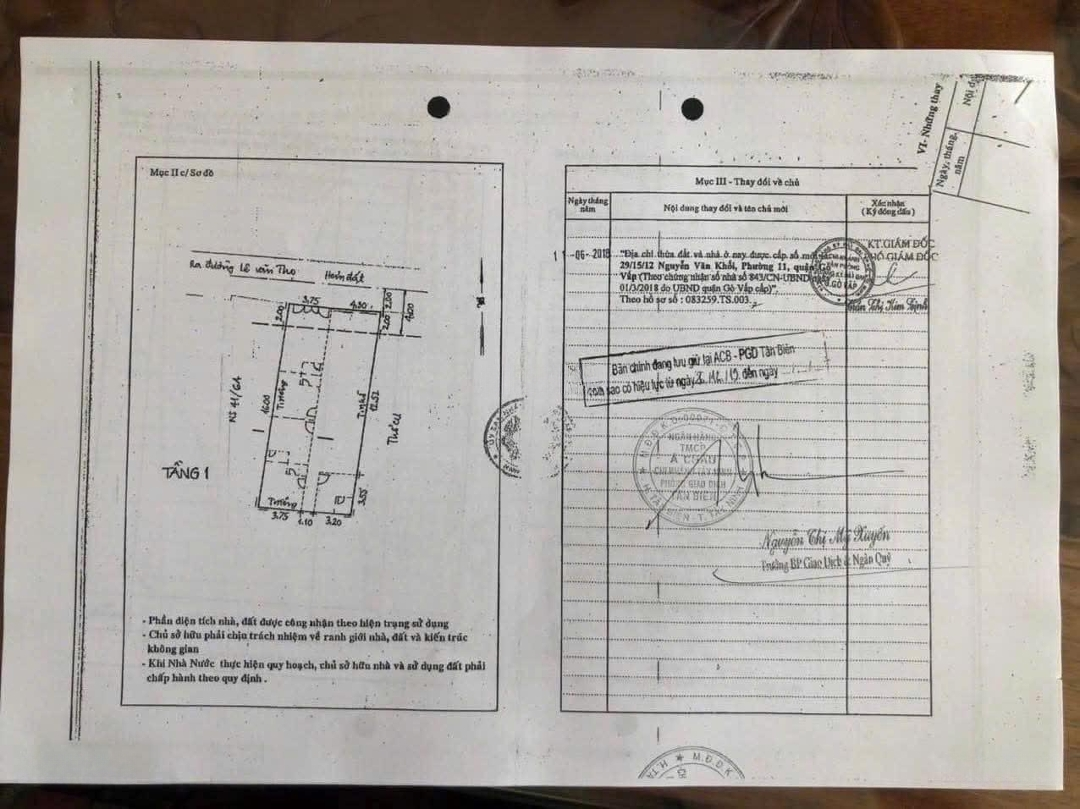 Mục II c/ Sơ đồ
Ra đường Lê Văn Thọ
Hẻm đất
3.75
4.30
2.00
2.00
2.00
4.00
NS 41/6A
16.00
T.riêng
T.nhà
12.52
Thổ cư
TẦNG 1
T.riêng
3.55
3.75
1.10
3.20
- Phần diện tích nhà, đất được công nhận theo hiện trạng sử dụng
- Chủ sở hữu phải chịu trách nhiệm về ranh giới nhà, đất và kiến trúc
không gian
- Khi Nhà Nước thực hiện quy hoạch, chủ sở hữu nhà và sử dụng đất phải
chấp hành theo quy định .
Mục III - Thay đổi về chủ
Ngày tháng
năm
Nội dung thay đổi và tên chủ mới
Xác nhận
( Ký đóng dấu)
-06-2018
"Địa chỉ thửa đất và nhà ở nay được cấp số mới
29/15/12 Nguyễn Văn Khối, Phường 11, quận Gò
Vấp (Theo chứng nhận số nhà số 843/CN-UBND
01/3/2018 do UBND quận Gò Vấp cấp)".
Theo hồ sơ số : 083259.TS.003.
KT.GIÁM ĐỐC
PHÓ GIÁM ĐỐC
GÒ VẤP
Trần Thị Kim Định
Bản chính đang lưu giữ tại ACB - PGD Tân Biên
sao có hiệu lực từ ngày đến ngày
NGÂN HÀNG
TMCP
Á CHÂU
CHI NHÁNH TÂY NINH
PHÒNG GIAO DỊCH
TÂN BIÊN
Nguyễn Thị Mỹ Xuyến
Trưởng BP Giao Dịch & Ngân Quỹ
VI- Những thay
Ngày, tháng,
năm
Nội d
M.Đ.Đ.K